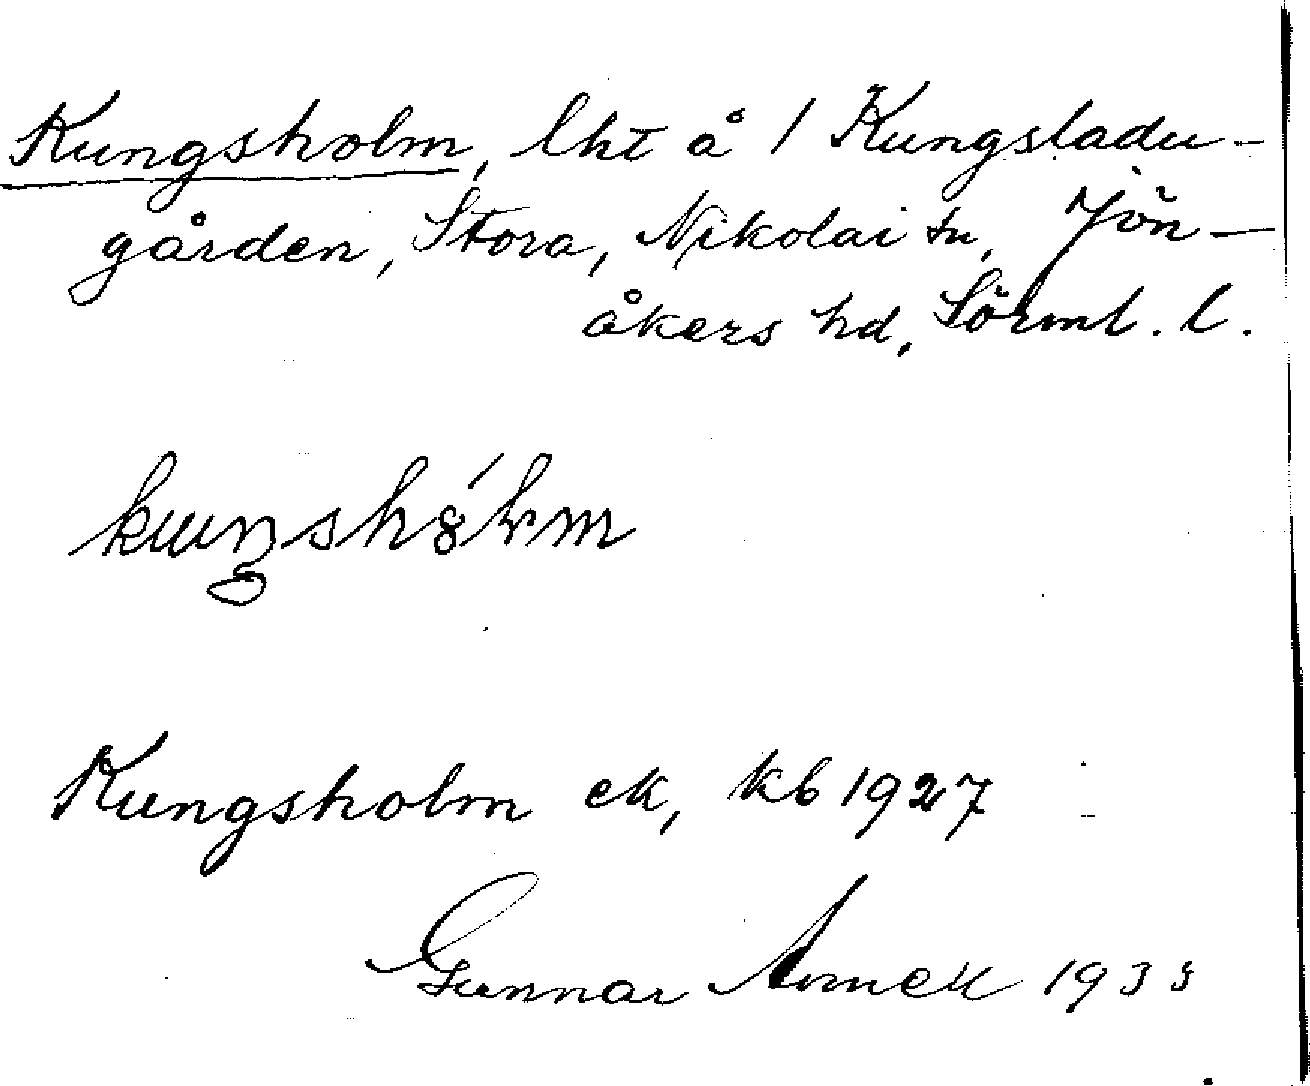 Kungsholm, lht å 1 Kungsladu-
gården, Stora, Nikolai sn, Jön-
åkers hd, Sörml. l.
Kungsholm ek, kb 1927
Gunnar 1933